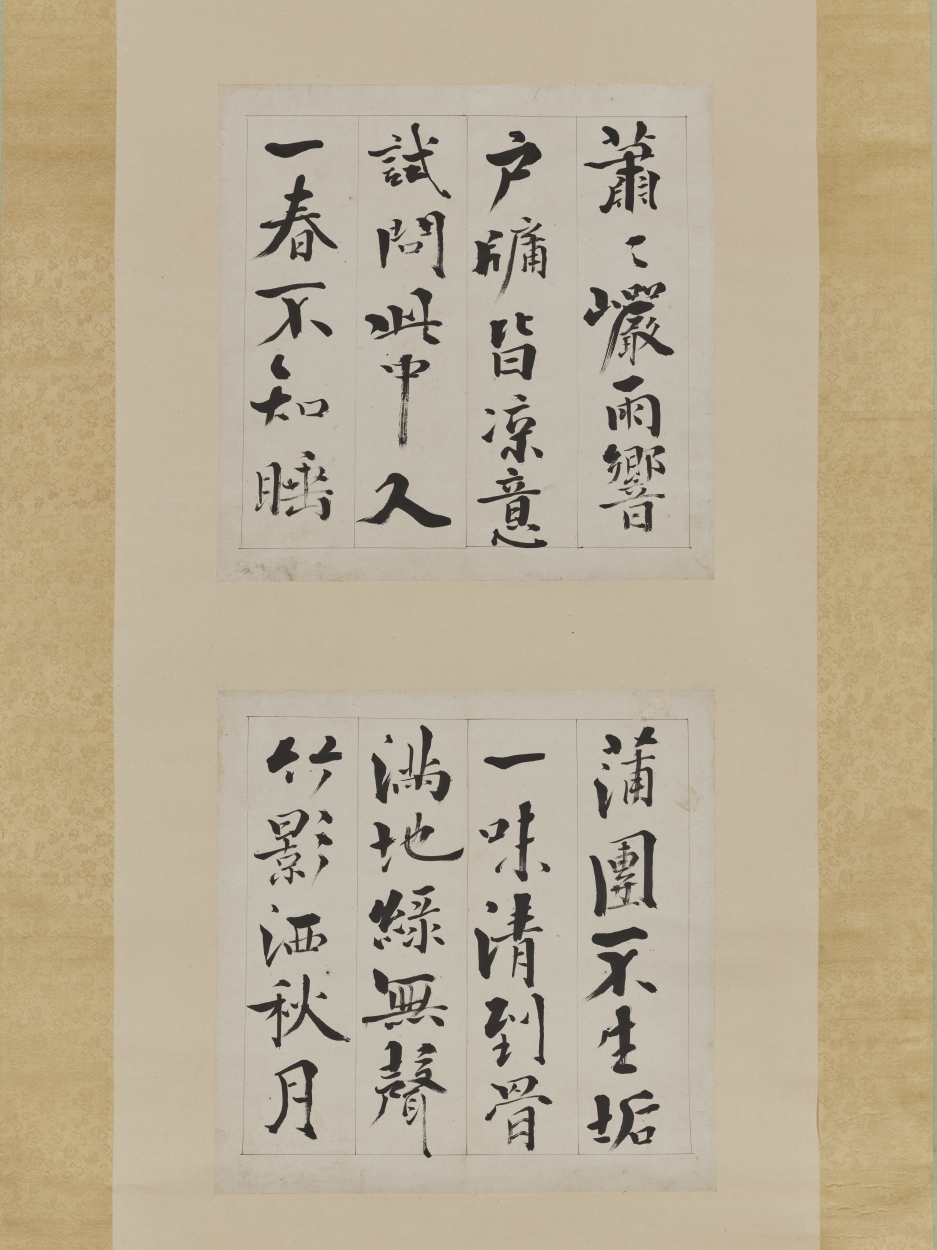 蕭〻巖雨響
户牖皆凉意
試問此中人
一春不知睡
蒲團不生垢
一味清到骨
滿地綠無聲
竹影洒秋月